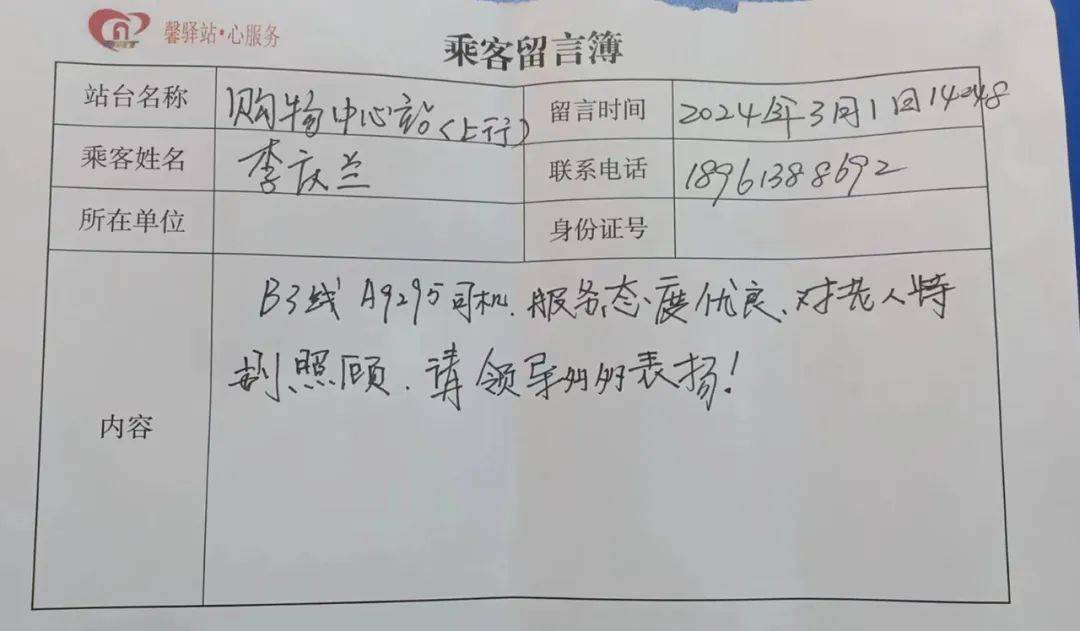 馨驿站·心服务
乘客留言簿
站台名称 购物中心站(上行) 留言时间 2024年3月1日14:48
乘客姓名 李庆兰 联系电话 18961388692
所在单位 身份证号
内容
B3线 A9295司机、服务态度优良、对老人特
别照顾、请领导多多表扬!